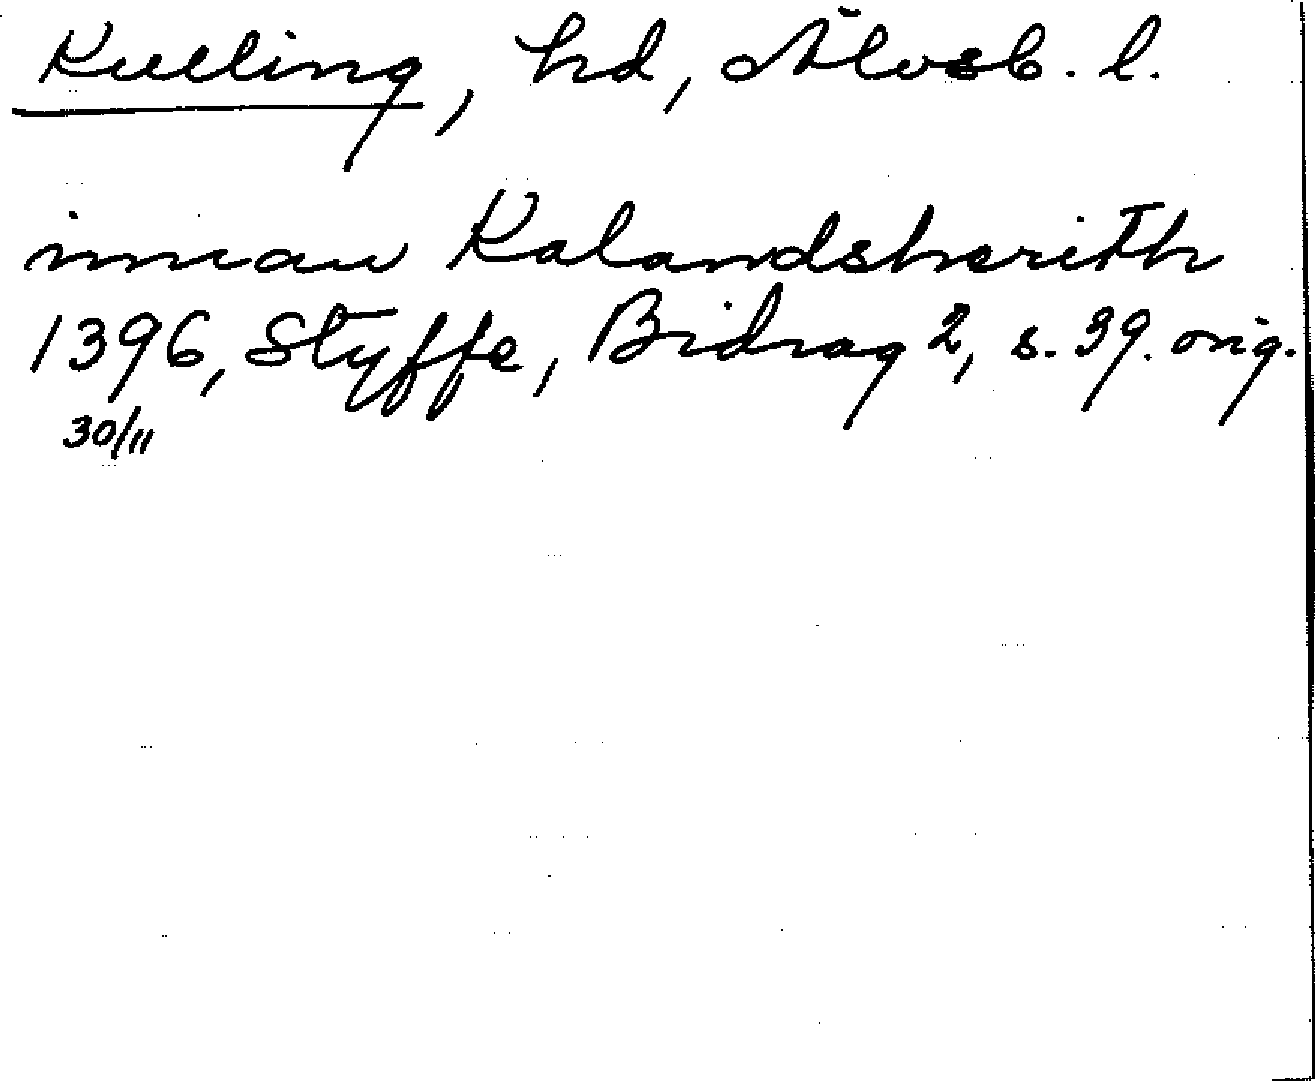 Kulling, hd, Älvsb. l.
innan Kalandshærith
1396, Styffe, Bidrag 2, s. 39. orig.
30/11